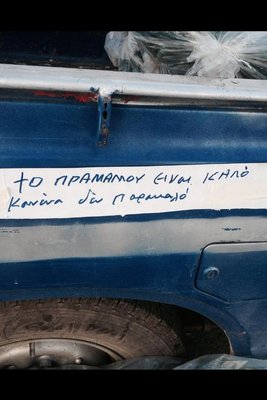 το ΠΡΑΜΑΜΟΥ ΕΙΝΑΙ ΚΑΛό
Κανένα δεν Παρακαλό